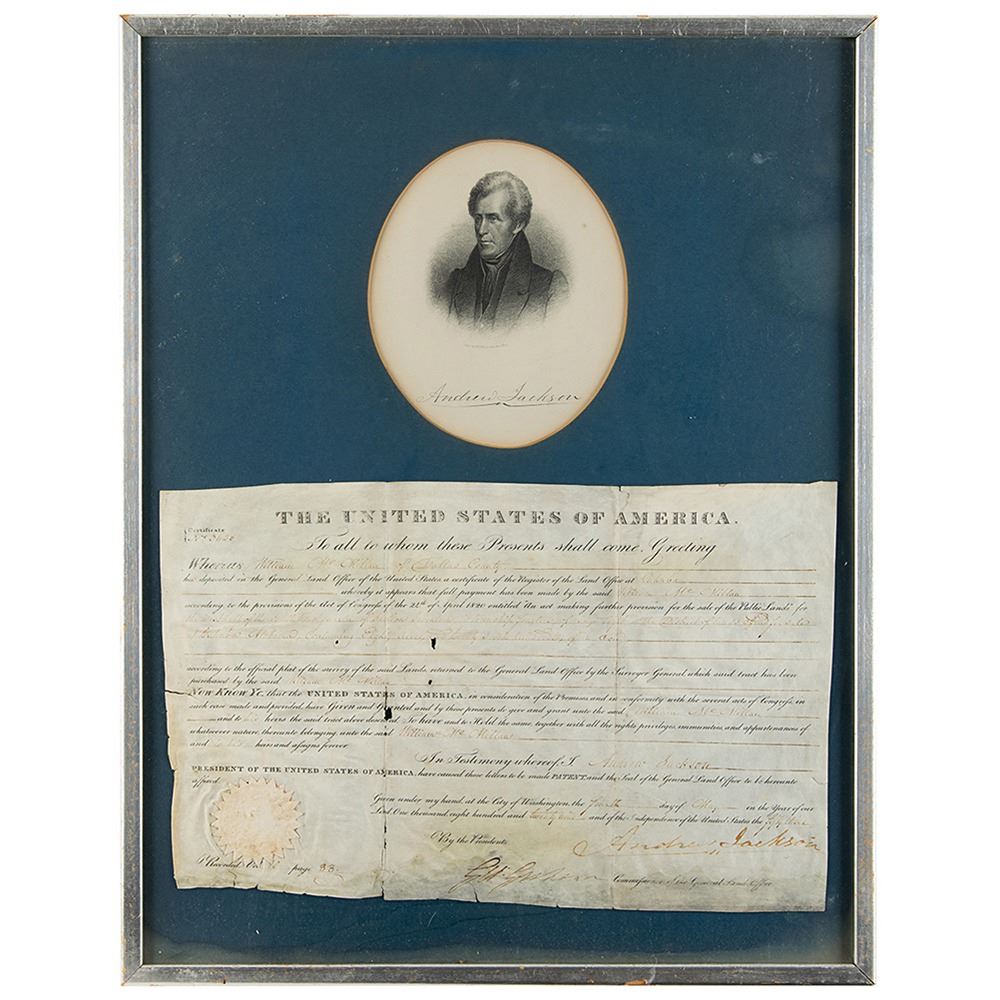 Andrew Jackson
THE UNITED STATES OF AMERICA.
Certificate
No. 3620
To all to whom these Presents shall come, Greeting
Whereas William Mc Millan of Dallas County
has deposited in the General Land Office of the United States, a certificate of the Register of the Land Office at Cahaba
whereby it appears that full payment has been made by the said William Mc Millan
according to the provisions of the Act of Congress of the 24th of April 1820 entitled An act making further provision for the sale of the Public Lands for
according to the official plat of the survey of the said Lands, returned to the General Land Office by the Surveyor General, which said tract has been
purchased by the said William Mc Millan
Now Know Ye, that the UNITED STATES OF AMERICA, in consideration of the Premises and in conformity with the several acts of Congress, in
such case made and provided, have Given and Granted and by these presents do give and grant unto the said William Mc Millan
and to his heirs the said tract above described To have and to Hold the same together with all the rights privileges, immunities, and appurtenances of
whatsoever nature, thereunto belonging, unto the said William Mc Millan
and to his heirs and assigns forever
In Testimony whereof, I Andrew Jackson
PRESIDENT OF THE UNITED STATES OF AMERICA, have caused these letters to be made PATENT, and the Seal of the General Land Office to be hereunto
affixed
Given under my hand, at the City of Washington, the fourth day of May in the Year of our
Lord One thousand eight hundred and twenty nine and of the Independence of the United States the fifty third
Andrew Jackson
By the President
Recorded Vol page 33
G. Graham Commissioner of the General Land Office